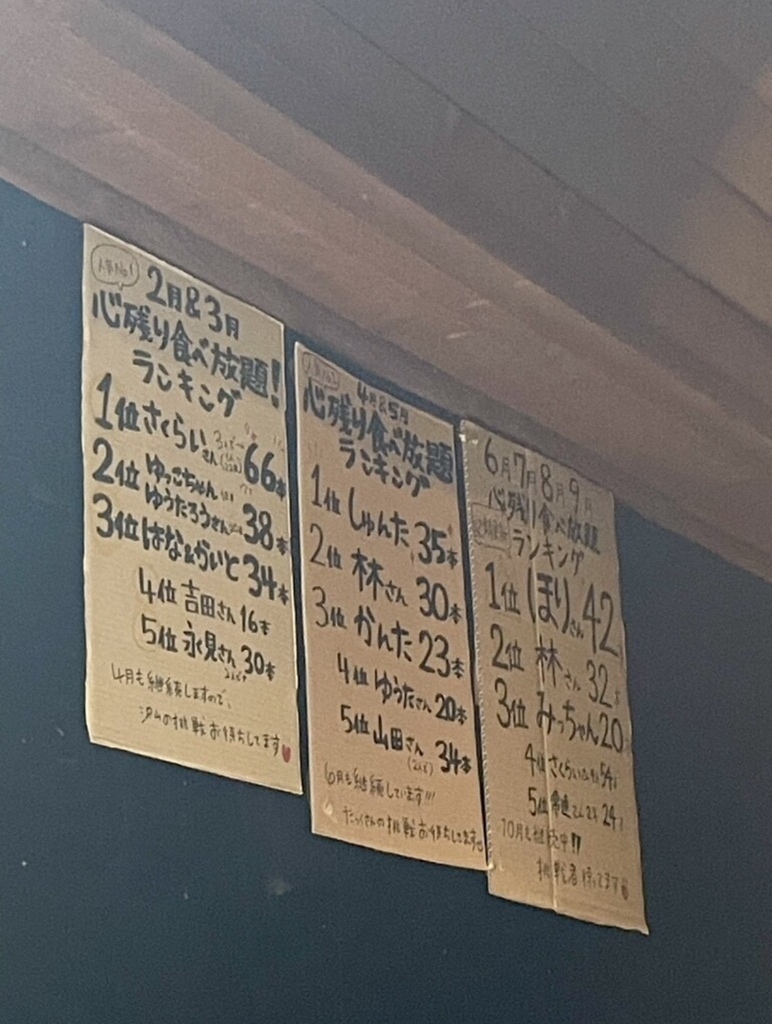 人気No.1
2月&3月
心残り食べ放題!
ランキング
1位 さくらいさん 66本
2位 ゆっこちゃん
ゆうたろうさん 38本
3位 はな&かいと 34本
4位 吉田さん 16本
5位 永見さん 30本
4月も継続しますので、
沢山の挑戦お待ちしてます
4月&5月
心残り食べ放題
ランキング
1位 しゅんた 35本
2位 林さん 30本
3位 かんた 23本
4位 ゆうたさん 20本
5位 山田さん 34本
6月も継続しています!!!
たっくさんの挑戦お待ちしてます
6月7月8月9月
心残り食べ放題
ランキング
1位 ほりさん 42
2位 林さん 32本
3位 みっちゃん 20
4位 さくらい 54
5位 24
10月も継続中!!
挑戦者待ってます